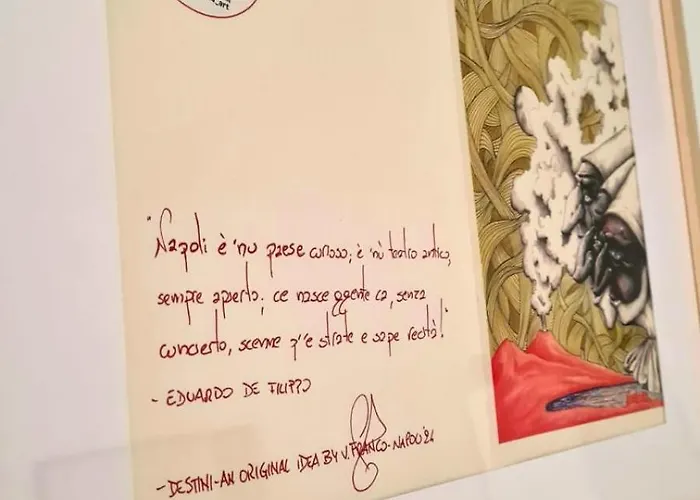 .art
"Napoli è 'nu paese curioso; è 'nu teatro antico,
sempre aperto; ce nasce ggente ca, senza
cuncierto, scenne p''e strate e sape recità!"
- EDUARDO DE FILIPPO
- DESTINI - AN ORIGINAL IDEA BY V. FRANCO - NAPOLI '21